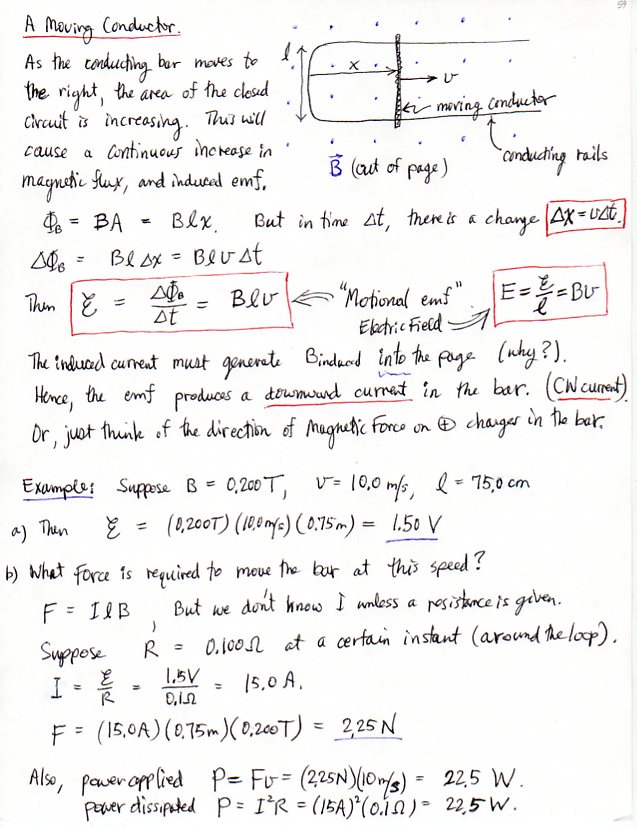 59
A Moving Conductor.
As the conducting bar moves to
the right, the area of the closed
circuit is increasing. This will
cause a continuous increase in
magnetic flux, and induced emf.
l
x
v
moving conductor
conducting rails
B⃗ (out of page)
Φ_B = BA = Blx. But in time Δt, there is a change Δx = vΔt.
ΔΦ_B = BlΔx = BlvΔt
Then ℰ = ΔΦ_B/Δt = Blv "Motional emf" E = ℰ/l = Bv
Electric Field
The induced current must generate Binduced into the page (why?).
Hence, the emf produces a downward current in the bar. (CW current)
Or, just think of the direction of Magnetic Force on ⊕ charges in the bar.
Example: Suppose B = 0.200T, v = 10.0 m/s, l = 75.0 cm
a) Then ℰ = (0.200T)(10.0m/s)(0.75m) = 1.50 V
b) What force is required to move the bar at this speed?
F = IlB , But we don't know I unless a resistance is given.
Suppose R = 0.100Ω at a certain instant (around the loop).
I = ℰ/R = 1.5V/0.1Ω = 15.0 A.
F = (15.0A)(0.75m)(0.200T) = 2.25 N
Also, power applied P = Fv = (2.25N)(10m/s) = 22.5 W.
power dissipated P = I²R = (15A)²(0.1Ω) = 22.5 W.